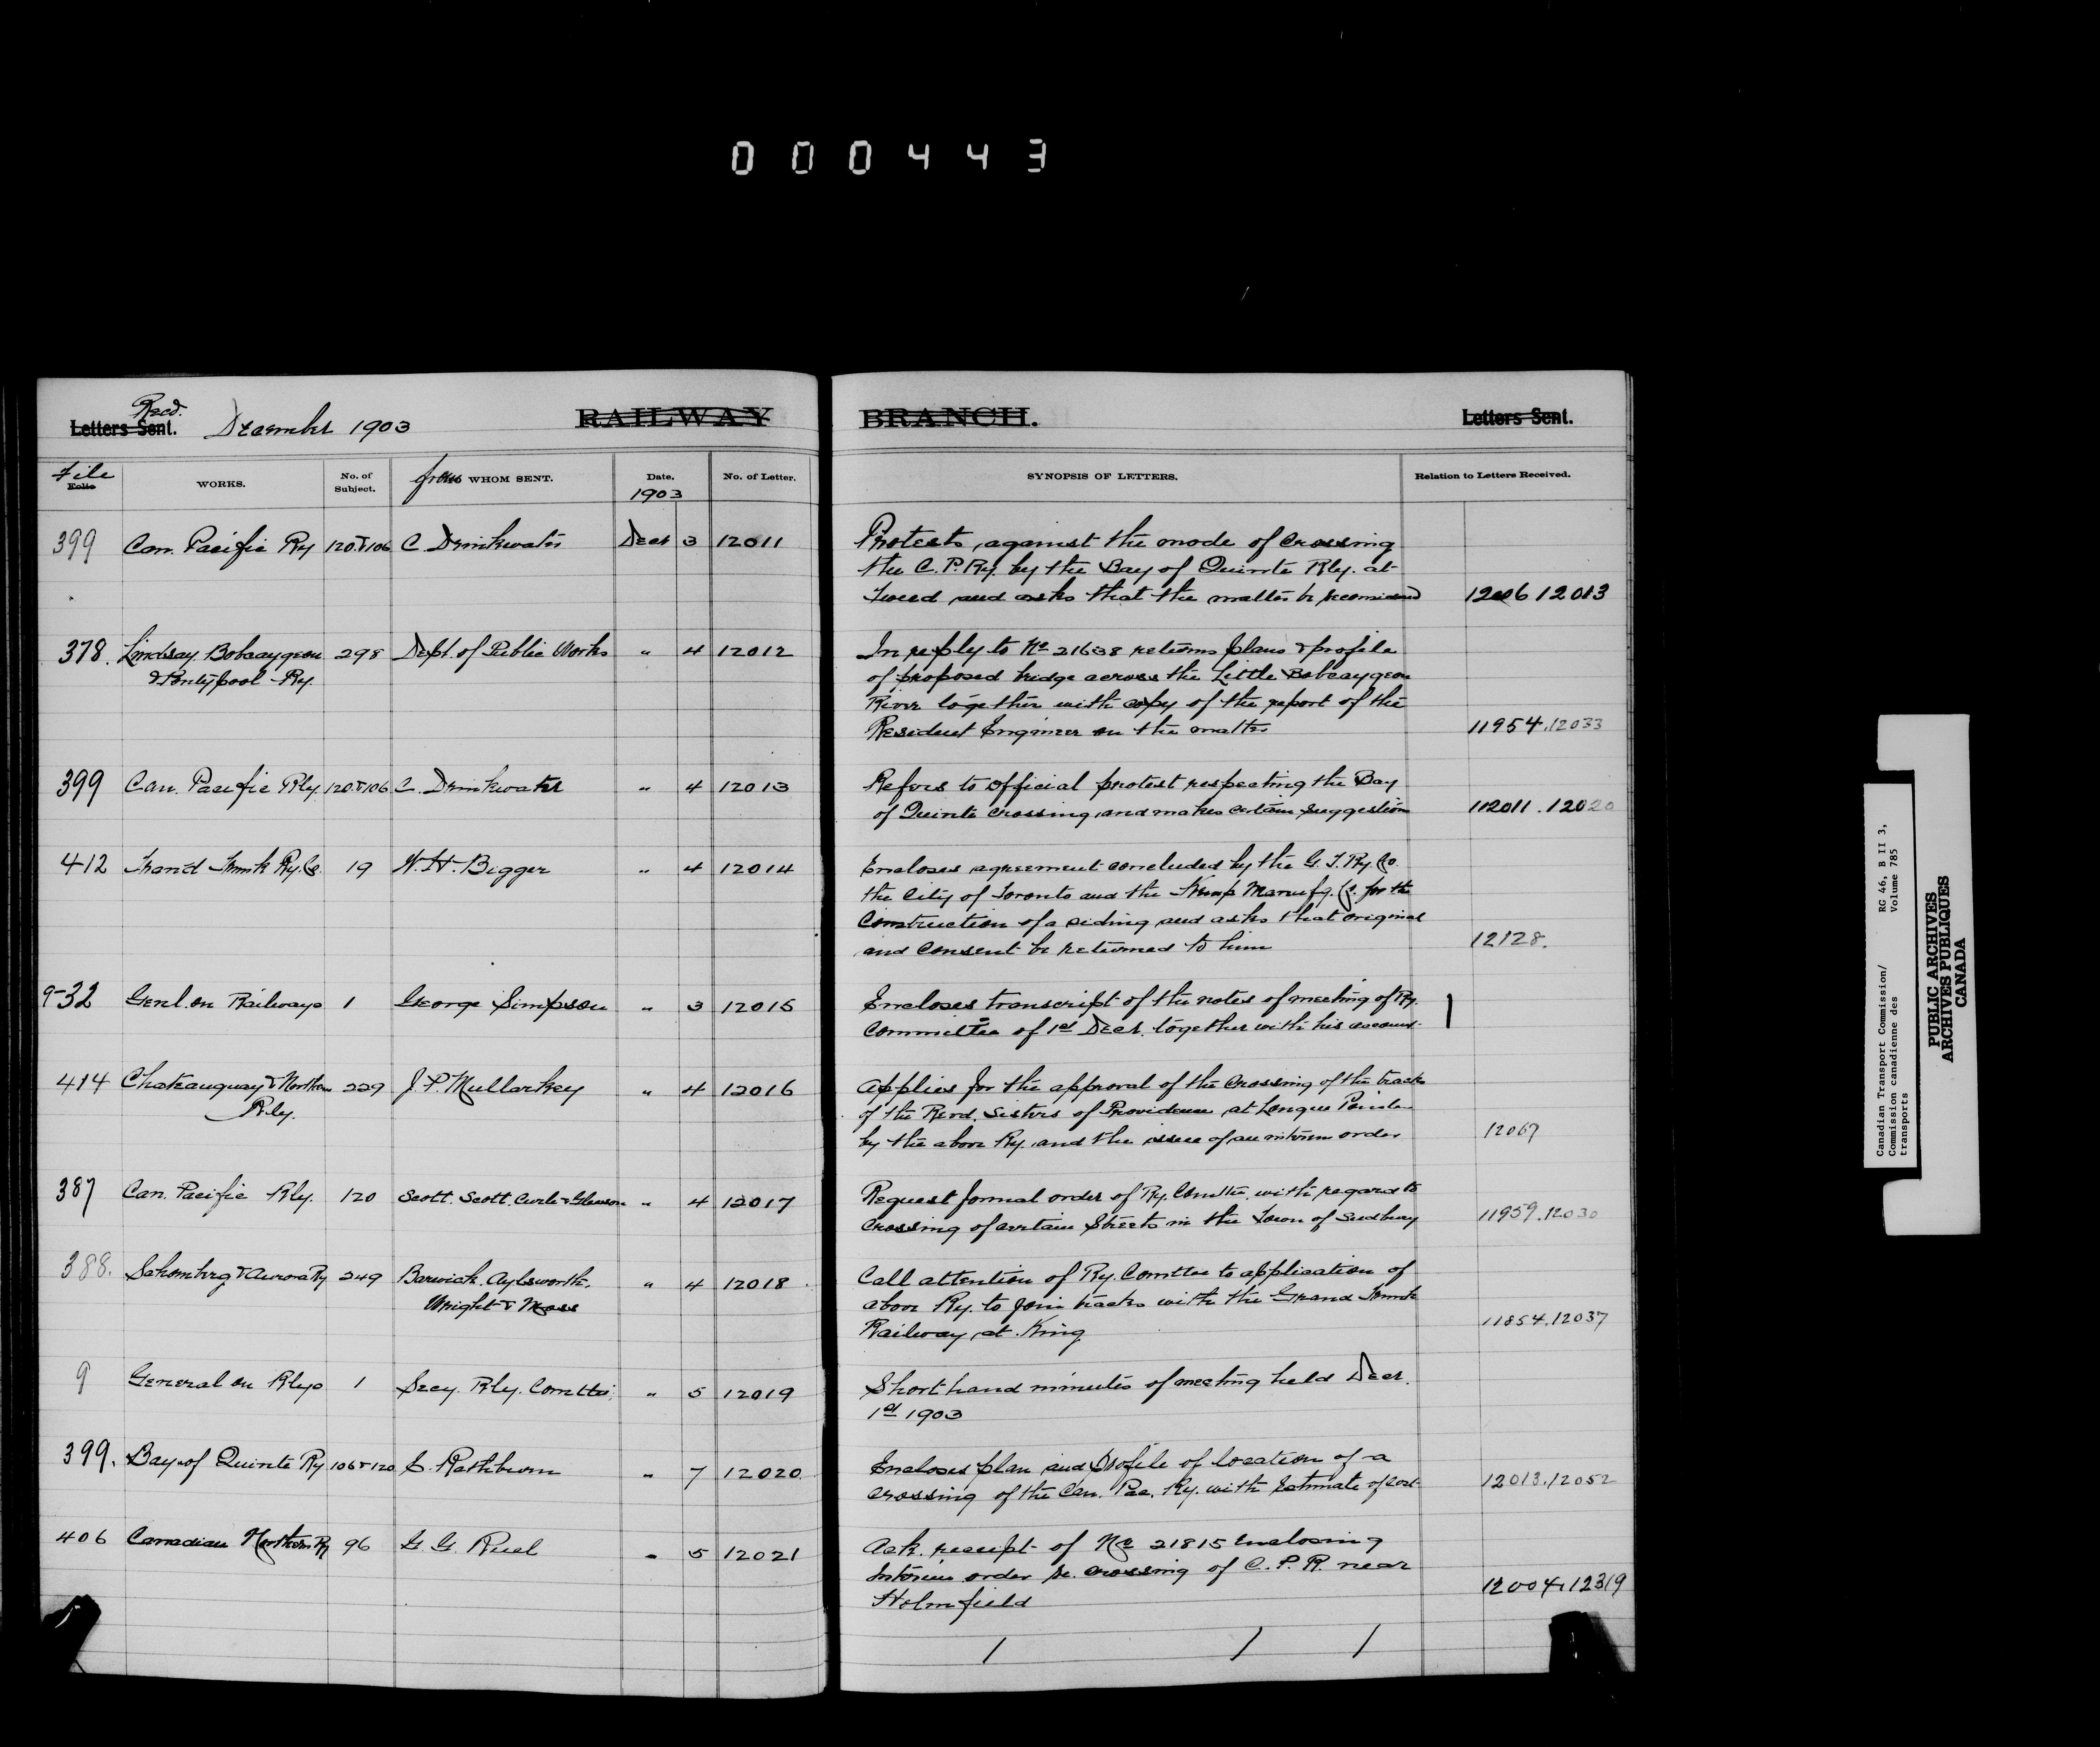 000443
Recd.
Letters Sent. December 1903 RAILWAY BRANCH. Letters Sent.
File
Folio WORKS. No. of Subject. from WHOM SENT. Date. 1903 No. of Letter. SYNOPSIS OF LETTERS. Relation to Letters Received.
399 Can. Pacific Ry 120 & 106 C. Drinkwater Decr 3 12011 Protests against the mode of crossing
the C.P. Ry. by the Bay of Quinte Rly. at
Tweed and asks that the matter be reconsidered 12006 12013
378. Lindsay Bobcaygeon 298 Dept. of Public Works " 4 12012 In reply to No 21638 returns plans & profile
& Pontypool Ry. of proposed bridge across the Little Bobcaygeon
River together with copy of the report of the
Resident Engineer on the matter 11954.12033
399 Can. Pacific Rly. 120 & 106 C. Drinkwater " 4 12013 Refers to official protest respecting the Bay
of Quinte crossing, and makes certain suggestions 12011.12020
412 Grand Trunk Ry. Co. 19 W. H. Bigger " 4 12014 Encloses agreement concluded by the G. T. Ry. Co.
the City of Toronto and the Kemp Manufg. Co. for the
Construction of a siding and asks that original
and consent be returned to him 12128.
9-32 Genl. on Railways 1 George Simpson " 3 12015 Encloses transcript of the notes of meeting of Ry.
Committee of 1st Decr. together with his account.
414 Chateauguay & Northern 229 J. P. Mullarkey " 4 12016 Applies for the approval of the crossing of the tracks
Rly. of the Revd. Sisters of Providence at Longue Pointe
by the above Ry. and the issue of an interim order 12067
387 Can. Pacific Rly. 120 Scott. Scott. Curle & Gleeson " 4 12017 Request formal order of Ry. Comttee. with regard to
crossing of certain Streets in the Town of Sudbury 11959.12030
388. Schomberg & Aurora Ry 249 Barwick. Aylsworth. " 4 12018 Call attention of Ry. Comttee to application of
Wright & Moss above Ry. to join tracks with the Grand Trunk
Railway at King 11854.12037
9 General on Rlys 1 Secy. Rly. Comttee. " 5 12019 Short hand minutes of meeting held Decr.
1st 1903
399. Bay of Quinte Ry 106 & 120 Rathbun " 7 12020 Encloses plan and profile of location of a
crossing of the Can. Pac. Ry. with Estimate of cost. 12013.12052
406 Canadian Northern Ry 96 G. G. Ruel " 5 12021 Ack. receipt of No 21815 enclosing
interim order re. crossing of C. P. R. near
Holmfield 12004.12319
Canadian Transport Commission/ RG 46, B II 3,
Commission canadienne des Volume 785
transports
PUBLIC ARCHIVES
ARCHIVES PUBLIQUES
CANADA